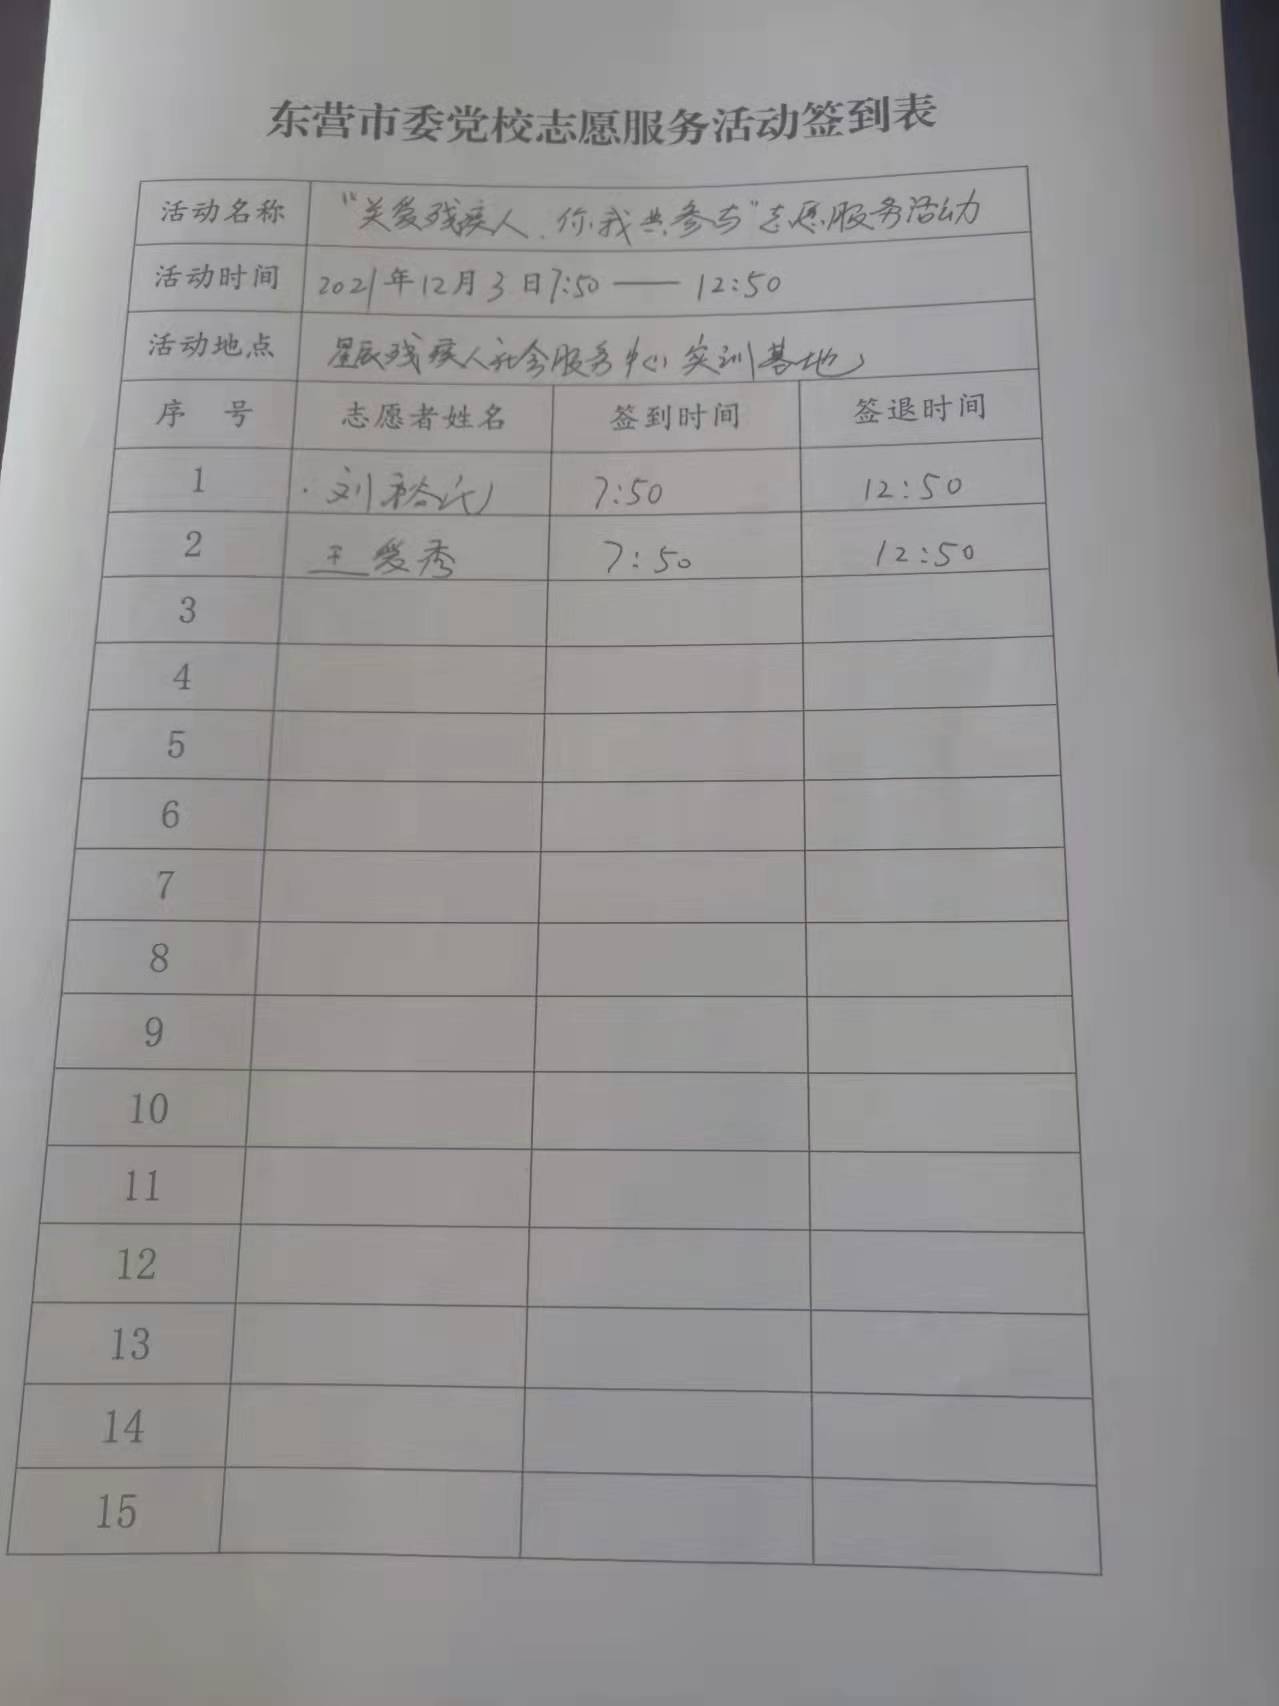 东营市委党校志愿服务活动签到表
活动名称 "关爱残疾人、你我共参与"志愿服务活动
活动时间 2021年12月3日7:50——12:50
活动地点 星辰残疾人社会服务中心实训基地
序 号 志愿者姓名 签到时间 签退时间
1 刘 7:50 12:50
2 王爱秀 7:50 12:50
3
4
5
6
7
8
9
10
11
12
13
14
15